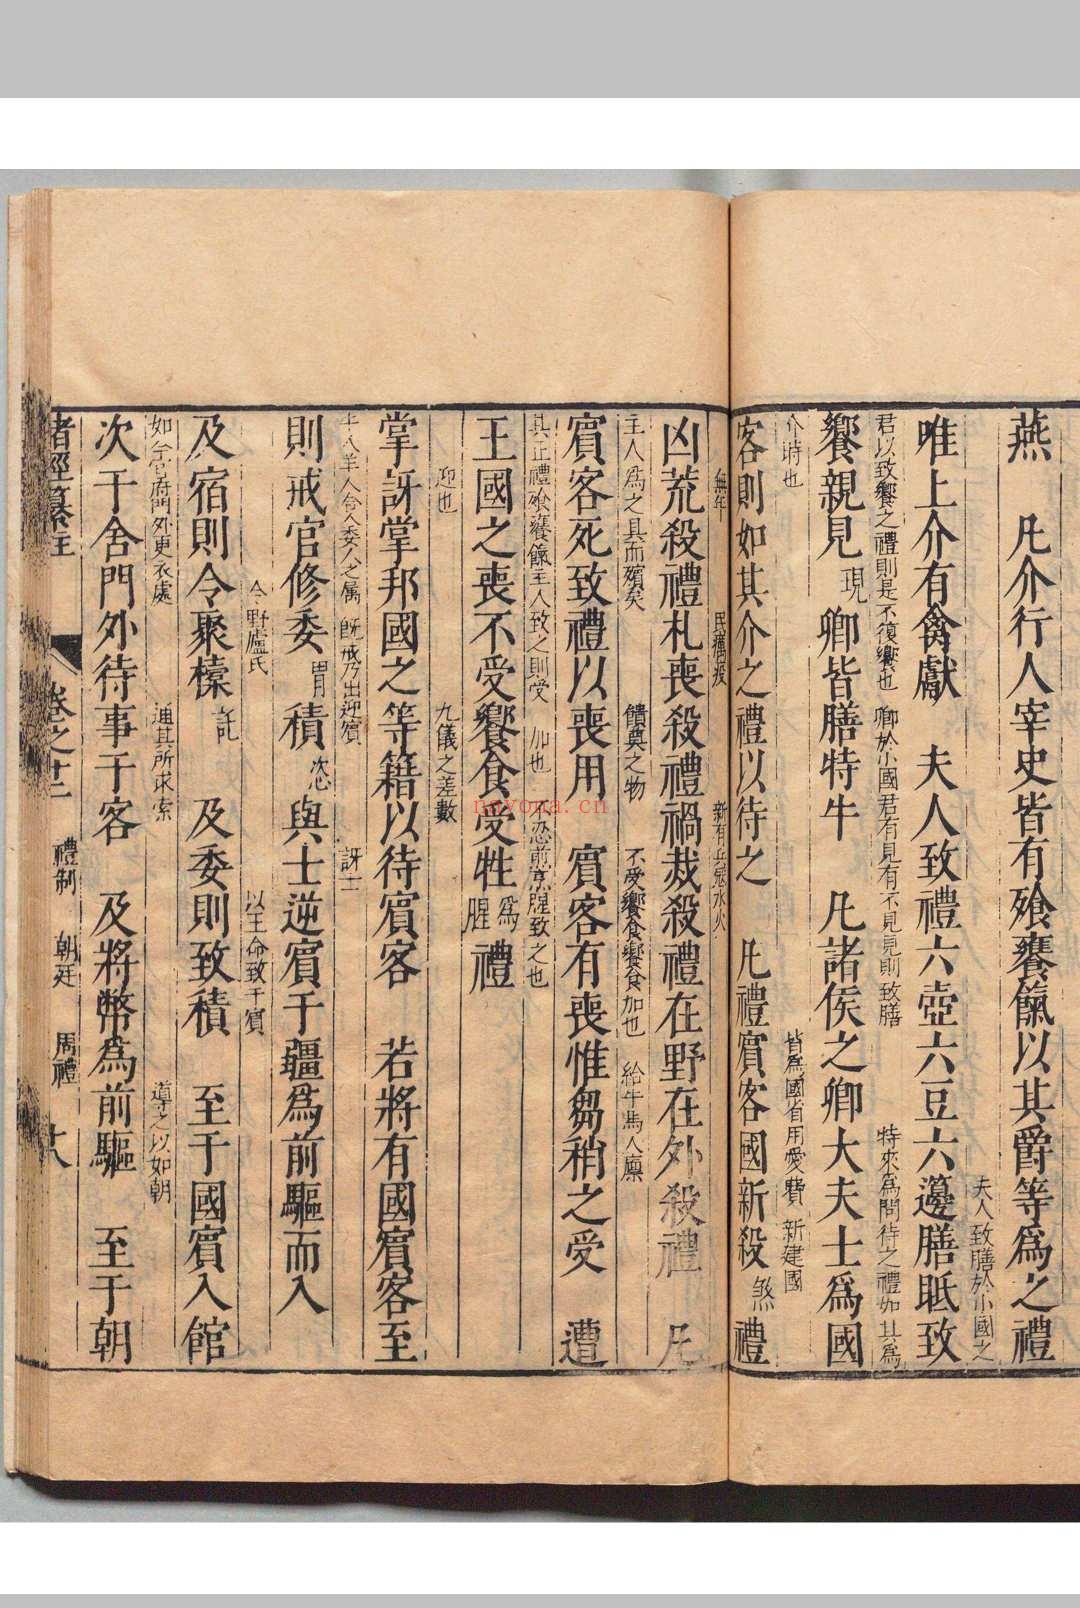 燕 凡介行人宰史皆有飧饔餼以其爵等爲之禮
夫人致膳於小國之
唯上介有禽獻 夫人致禮六壺六豆六籩膳眂致
君以致饗之禮則是不復饗也 卿於小國君有見有不見見則致膳 特來爲問待之禮如其爲
饗親見現 卿皆膳特牛 凡諸侯之卿大夫士爲國
介時也 皆爲國省用愛費 新建國
客則如其介之禮以待之 凡禮賓客國新殺煞禮
無年 民癘疫 新有兵寇水火
凶荒殺禮札喪殺禮禍烖殺禮在野在外殺禮 凡
主人爲之具而殯矣 饋奠之物 不受饗食饗食加也 給牛馬人廩
賓客死致禮以喪用 賓客有喪惟芻稍之受 遭
其正禮飧饔餼主人致之則受 加也 不忍煎烹腥致之也
王國之喪不受饗食受牲爲腥禮
迎也 九儀之差數
掌訝掌邦國之等籍以待賓客 若將有國賓客至
牛人羊人舍人委人之屬 既戒乃出迎賓 訝士
則戒官修委胃積恣與士逆賓于疆爲前驅而入
令野廬氏 以王命致于賓
及宿則令聚𣝔託 及委則致積 至于國賓入館
如今官府門外更衣處 通其所求索 導之以如朝
次于舍門外待事于客 及將幣爲前驅 至于朝
諸經纂註 卷之十二 禮制 朝廷 周禮 十八
nayona.cn